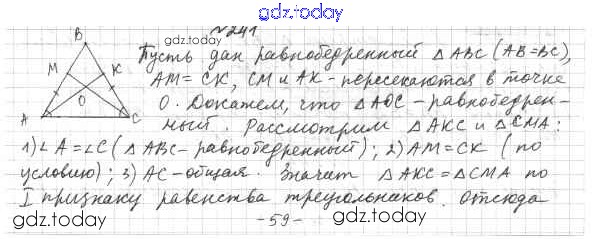 gdz.today
№241
gdz.today
B
Пусть дан равнобедренный △ABC (AB=BC),
M K
AM=CK, CM и AK - пересекаются в точке
O
O. Докажем, что △AOC - равнобедрен-
A C
ный. Рассмотрим △AKC и △CMA:
1) ∠A=∠C (△ABC - равнобедренный); 2) AM=CK (по
условию); 3) AC - общая. Значит △AKC=△CMA по
I признаку равенства треугольников. Отсюда
- 59 -
gdz.today
gdz.today